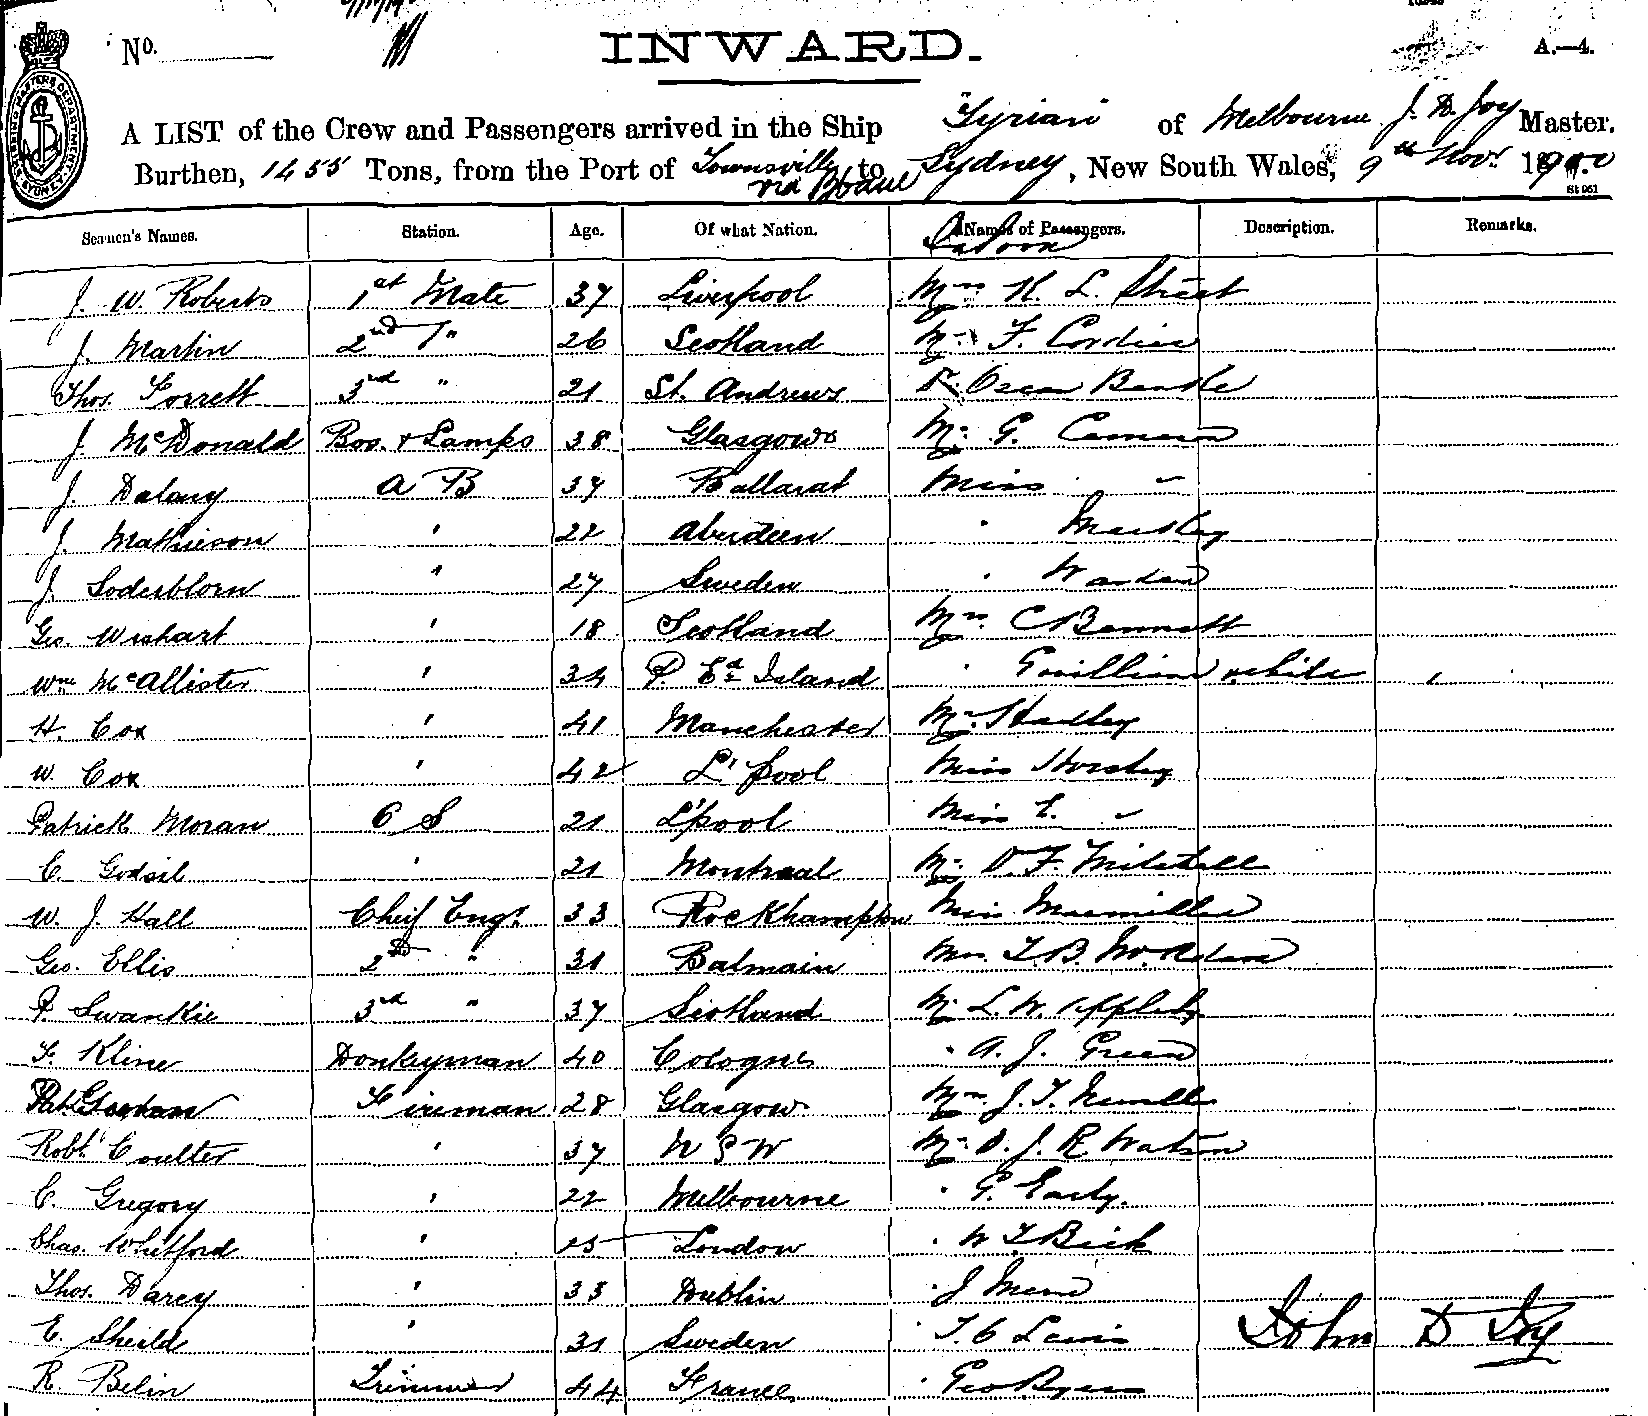 No. INWARD. A.—4.
A LIST of the Crew and Passengers arrived in the Ship "Tyrian" of Melbourne J. D. Joy Master.
Burthen, 1455 Tons, from the Port of Townsville via Bbane to Sydney, New South Wales, 9th Novr 1900
St 961
Seamen's Names. Station. Age. Of what Nation. Names of Passengers. Description. Remarks.
Saloon
J. W. Roberts 1st Mate 37 Liverpool Mrs H. L. Street
J. Martin 2nd " 26 Scotland Mr F.
Thos. Forrett 3rd " 21 St. Andrews
J. McDonald Bos. & Lamps 38 Glasgow Mr G. Cameron
J. Delany A B 37 Ballarat Miss "
J. Mathieson " 22 Aberdeen "
J. Soderblom " 27 Sweden "
Geo. Wishart " 18 Scotland Mrs C Bennett
Wm McAllister " 34 P. Ed Island " white
H. Cox " 41 Manchester Mr
W. Cox " 42 L'pool Miss Horsley
Patrick Moran O S 21 L'pool Miss E. "
C. Godsil " 21 Montreal Mr D. F. Mitchell
W. J. Hall Cheif Engr 33 Rockhampton Miss Macmillan
Geo. Ellis 2nd " 31 Balmain Mrs T. B. McAdam
P. Swankie 3rd " 37 Scotland Mr L. W. Appleby
F. Kline Donkeyman 40 Cologne " A. J. Green
Fireman 28 Glasgow Mrs J. T. Newell
Robt Coulter " 37 N S W Mr D. J. R. Watson
C. Gregory " 22 Melbourne " G. Early.
Chas. Whitford " 25 London " W T Bick
Thos. Darcy " 33 Dublin " J
E. Sheild " 31 Sweden " T. C Lewis
R. Belin Trimmer 44 France " Geo Byers
John D Joy